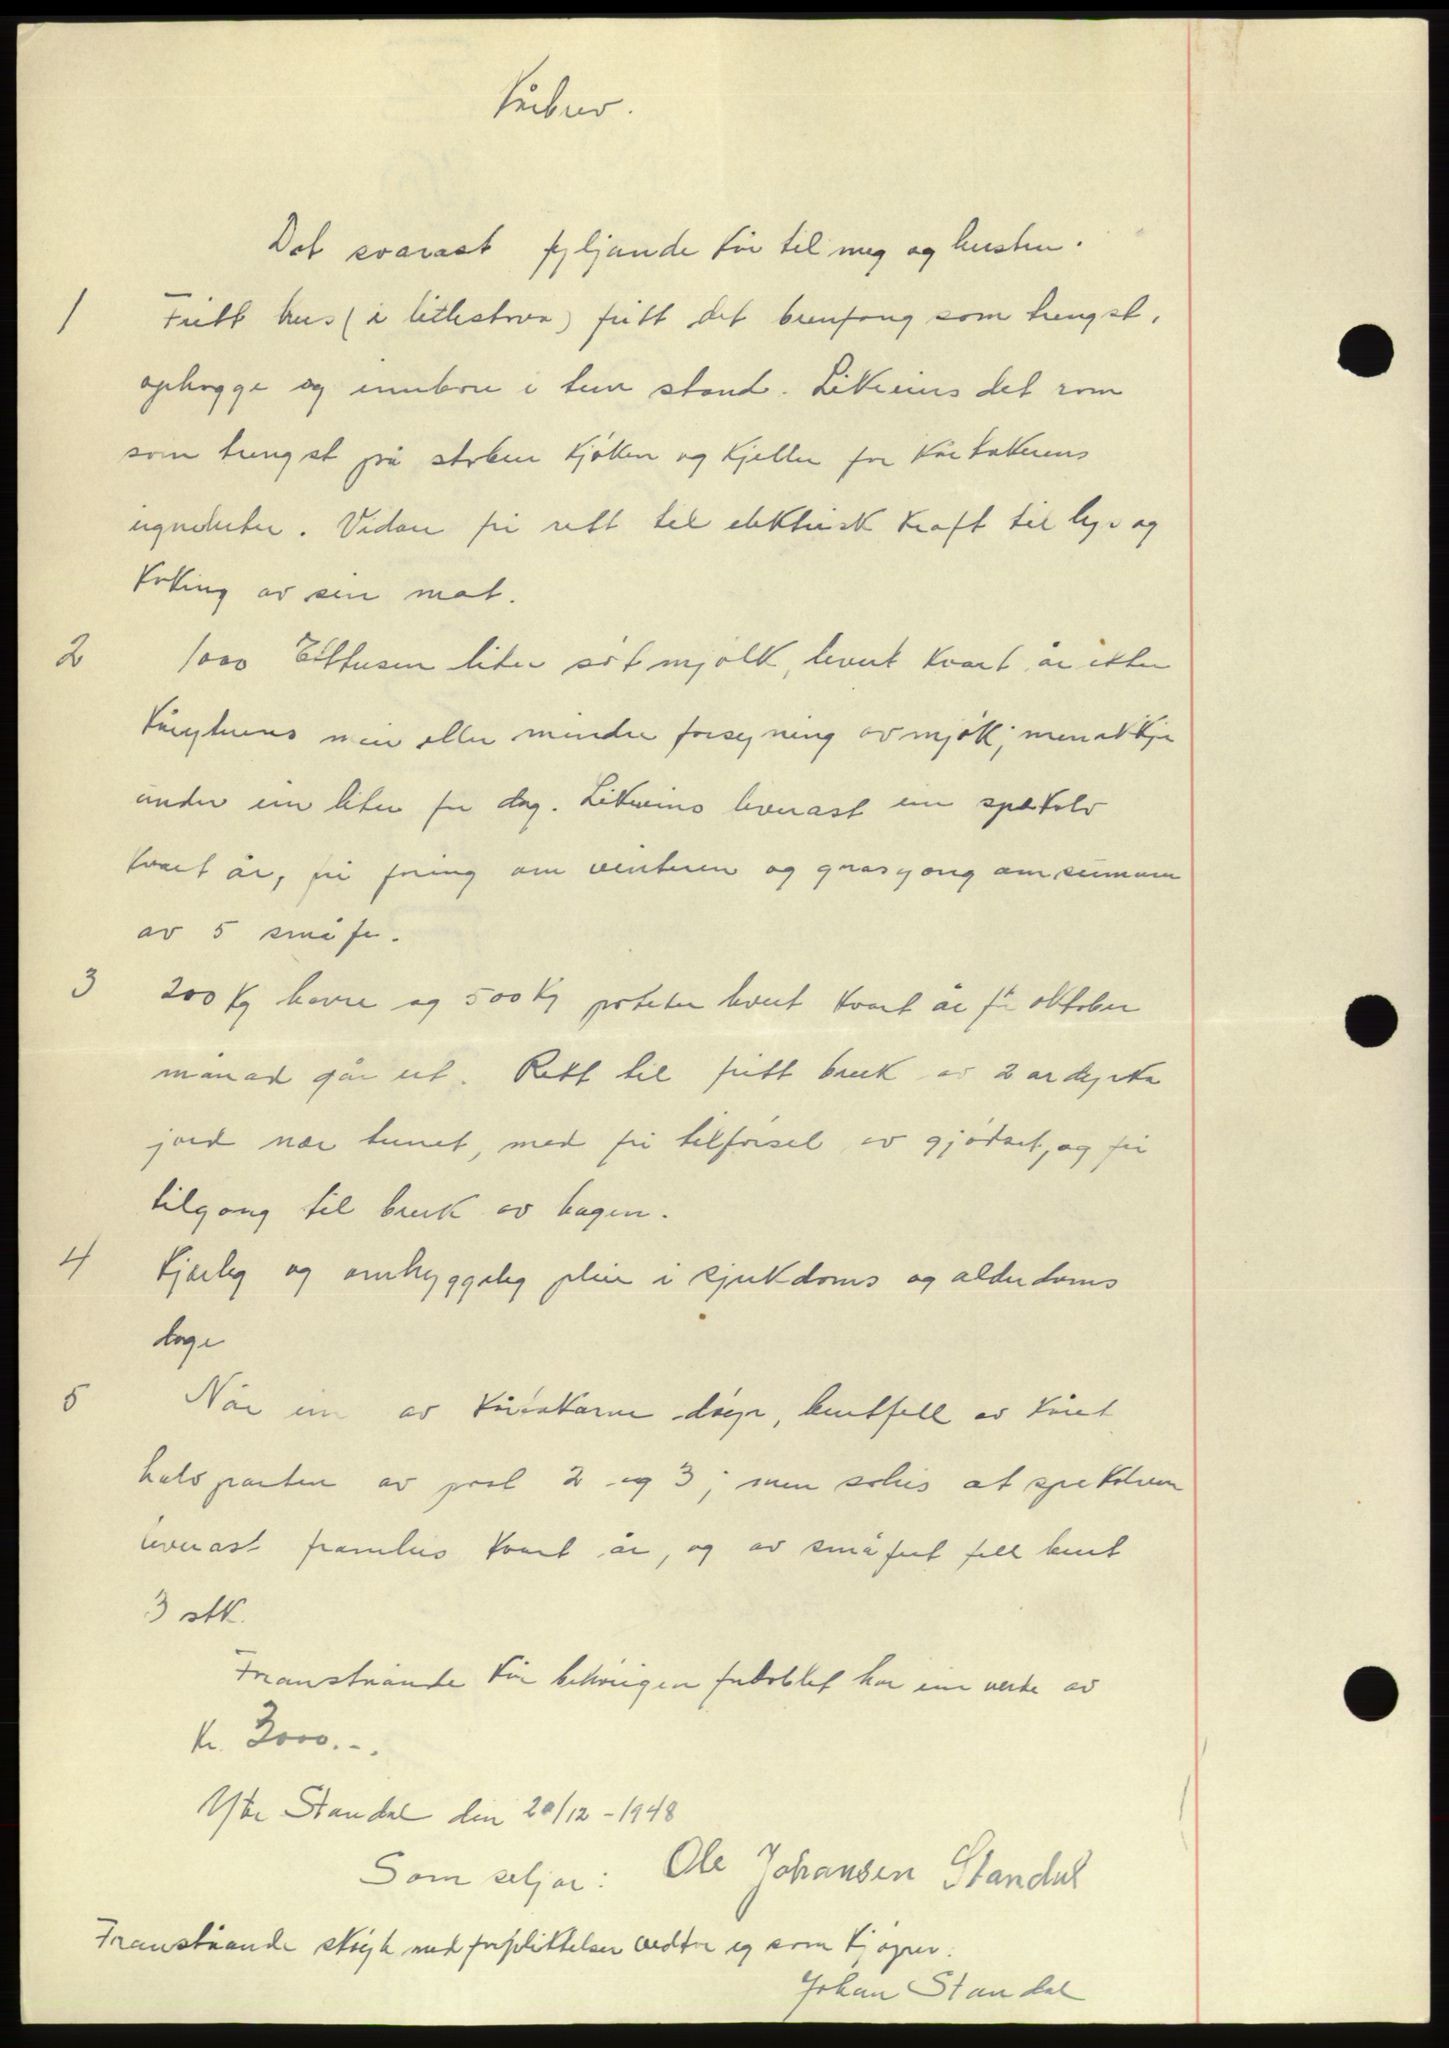 Kårbrev.
Det svarast fyljande kår til meg og hustru.
1 Fritt hus (i litlestova) fritt det brenfang som trengst,
ophogge og innboren i turr stand. Likeeins det rom
som trengst på stabur kjøken og kjeller for kårtakerens
eigneluter. Vidare fri rett til elektrisk kraft til lys og
koking av sin mat.
2 1000 Ettusen liter søt mjølk, levert kvart år etter
kårytarens meir eller mindre forsyning av mjølk; men ikkje
under ein liter pr dag. Likeeins leverast ein spekalv
kvart år, fri foring om vinteren og grasgang om summaren
av 5 småfe.
3 200 kg havre og 500 kg poteter levert kvart år før oktober
månad går ut. Rett til fritt bruk av 2 ar dyrka
jord nær tunet, med fri tilførsel av gjødsel, og fri
tilgang til bruk av hagen.
4 Kjærleg og omhyggeleg pleie i sjukdoms og alderdoms
dage
5 Når ein av kårtakarne døyr, burtfell av kåret
halvparten av post 2 og 3; men soleis at spekalven
leverast framleis kvart år, og av småfeet fell burt
3 stk.
Framståande kår behørigen frådobblet har ein verde av
kr. 3000.-.
Ytre Standal den 20/12 - 1948
Som seljar: Ole Johansen Standal
Framståande skøyte med forpliktelser vedtar eg som kjøper.
Johan Standal